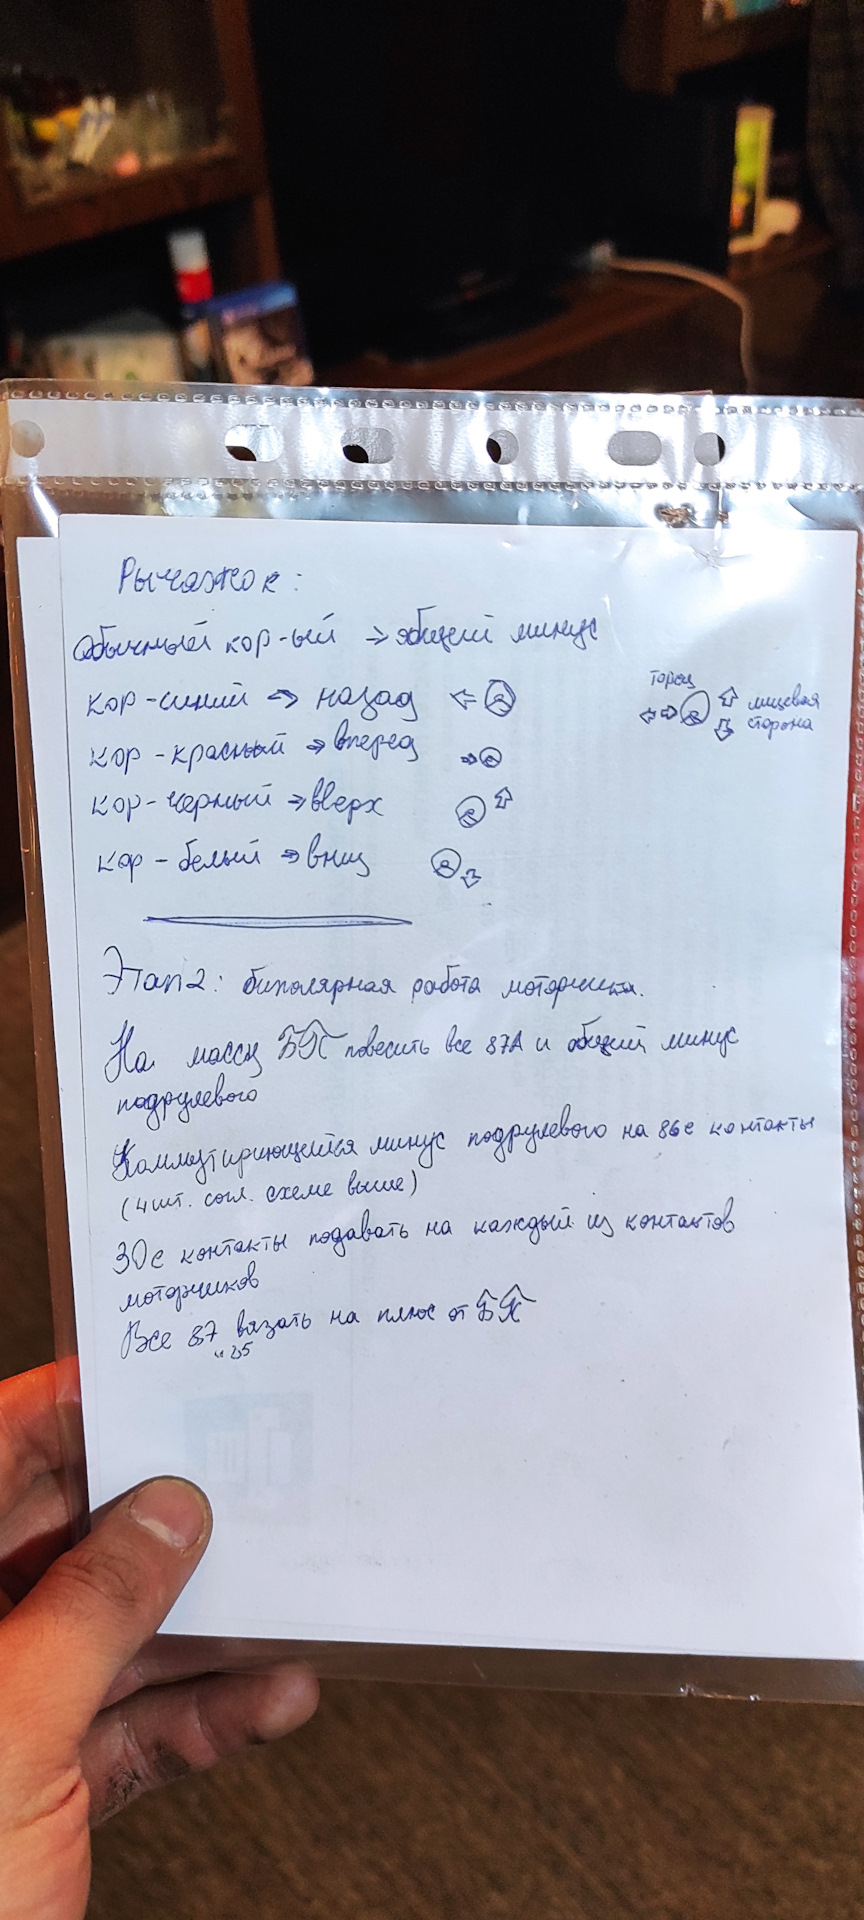 Рычажок:
Обычный кор-ый → общий минус
кор-синий → назад ←
торец
лицевая
сторона
кор-красный → вперед →
кор-черный → вверх
кор-белый → вниз
Этап 2: биполярная работа моторчика.
На массу БП повесить все 87А и общий минус
подрулевого
Коммутирующейся минус подрулевого на 86е контакты
(4шт. согл. схеме выше)
30е контакты подавать на каждый из контактов
моторчиков
Все 87 вязать на плюс от БП
и 85